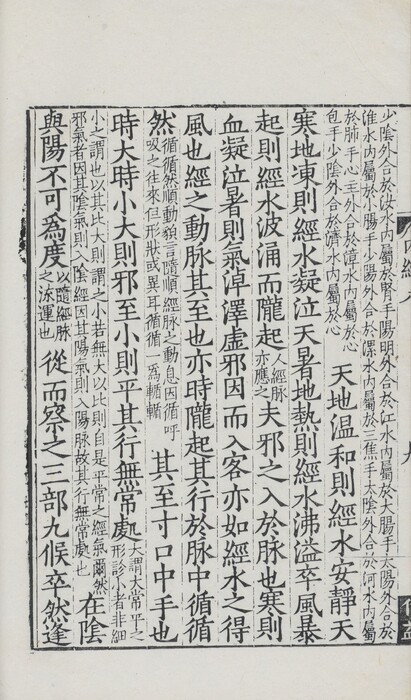 少陰外合於汝水內屬於腎手陽明外合於江水內屬於大腸手太陽外合於
淮水內屬於小腸手少陽外合於漯水內屬於三焦手太陰外合於河水內屬
於肺手心主外合於漳水內屬於心
包手少陰外合於濟水內屬於心
天地温和則經水安靜天
寒地凍則經水凝泣天暑地熱則經水沸溢卒風暴
起則經水波涌而隴起
人經脉
亦應之
夫邪之入於脉也寒則
血凝泣暑則氣淖澤虛邪因而入客亦如經水之得
風也經之動脉其至也亦時隴起其行於脉中循循
然
循循然順動貌言隨順經脉之動息因循呼
吸之往來但形狀或異耳循循一為輴輴
其至寸口中手也
時大時小大則邪至小則平其行無常處
大謂大常平之
形診小者非細
小之謂也以其比大則謂之小若無大以比則自是平常之經氣爾然
邪氣者因其陰氣則入陰經因其陽氣則入陽脉故其行無常處也
在陰
與陽不可為度
以隨經脉
之流運也
從而察之三部九候卒然逢